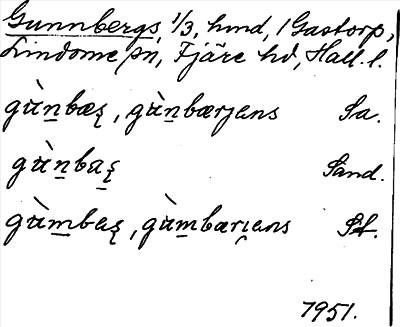 Gunnbergs, 1/3, hmd, i Gastorp,
Lindome sn, Fjäre hd, Hall. l.
gùn̲bæȩ, gùn̲bærjens Sa.
gùn̲baȩ Sand.
gùm̲beȩ, gùm̲bæri̯ens St.
1951.